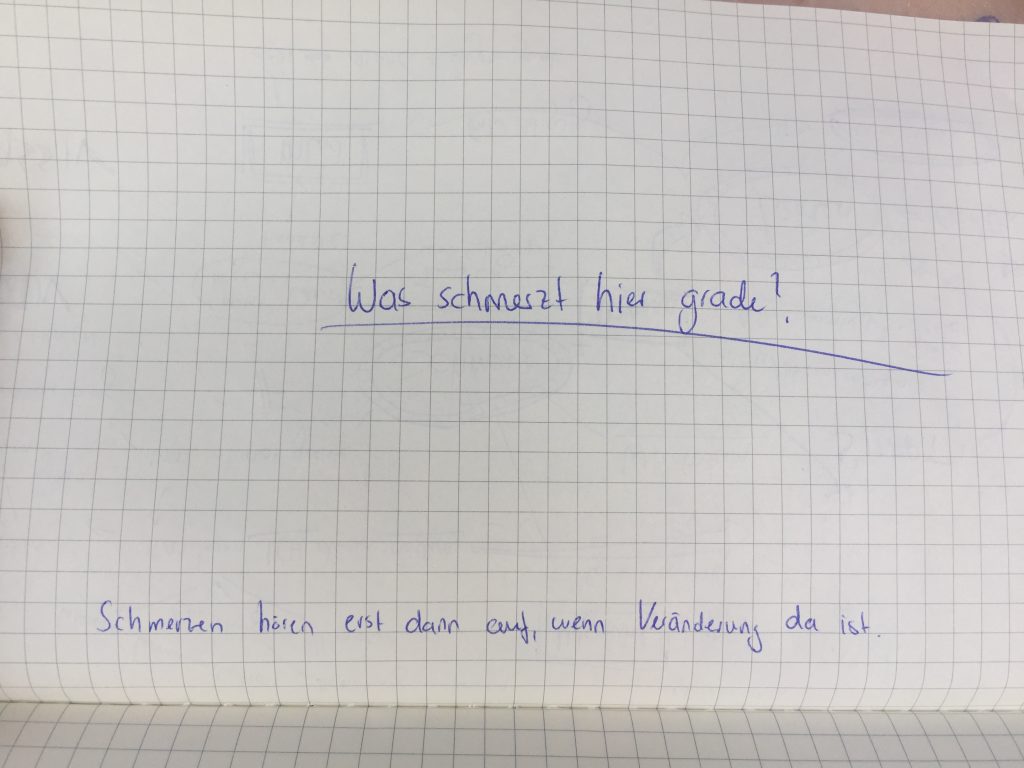 Was schmerzt hier grade?
Schmerzen hören erst dann auf, wenn Veränderung da ist.